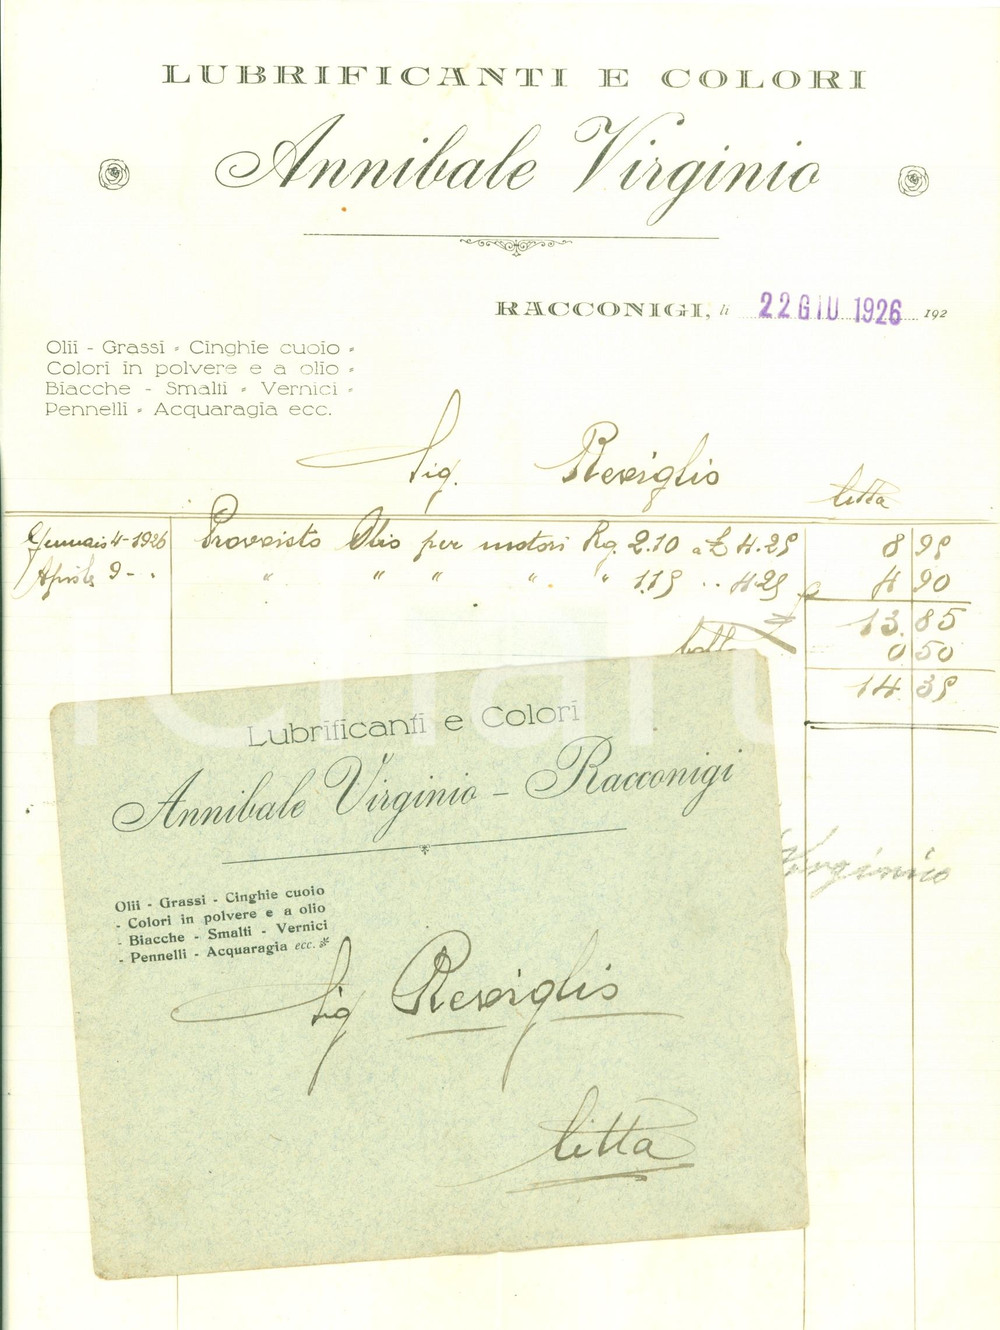 LUBRIFICANTI E COLORI
Annibale Virginio
RACCONIGI, li 22 GIU 1926 192
Olii - Grassi - Cinghie cuoio -
Colori in polvere e a olio -
Biacche - Smalti - Vernici -
Pennelli - Acquaragia ecc.
Sig. Reviglio
Città
Gennaio 4-1926 Provvisto Olio per motori Kg. 2.10 a £ 4.25 8 95
Aprile 9 - . " " " " " 1.15 .. 4.25 4 90
13.85
bollo 0 50
14.35
Virginio
Lubrificanti e Colori
Annibale Virginio - Racconigi
Olii - Grassi - Cinghie cuoio
- Colori in polvere e a olio
- Biacche - Smalti - Vernici
- Pennelli - Acquaragia ecc.
Sig Reviglio
Città